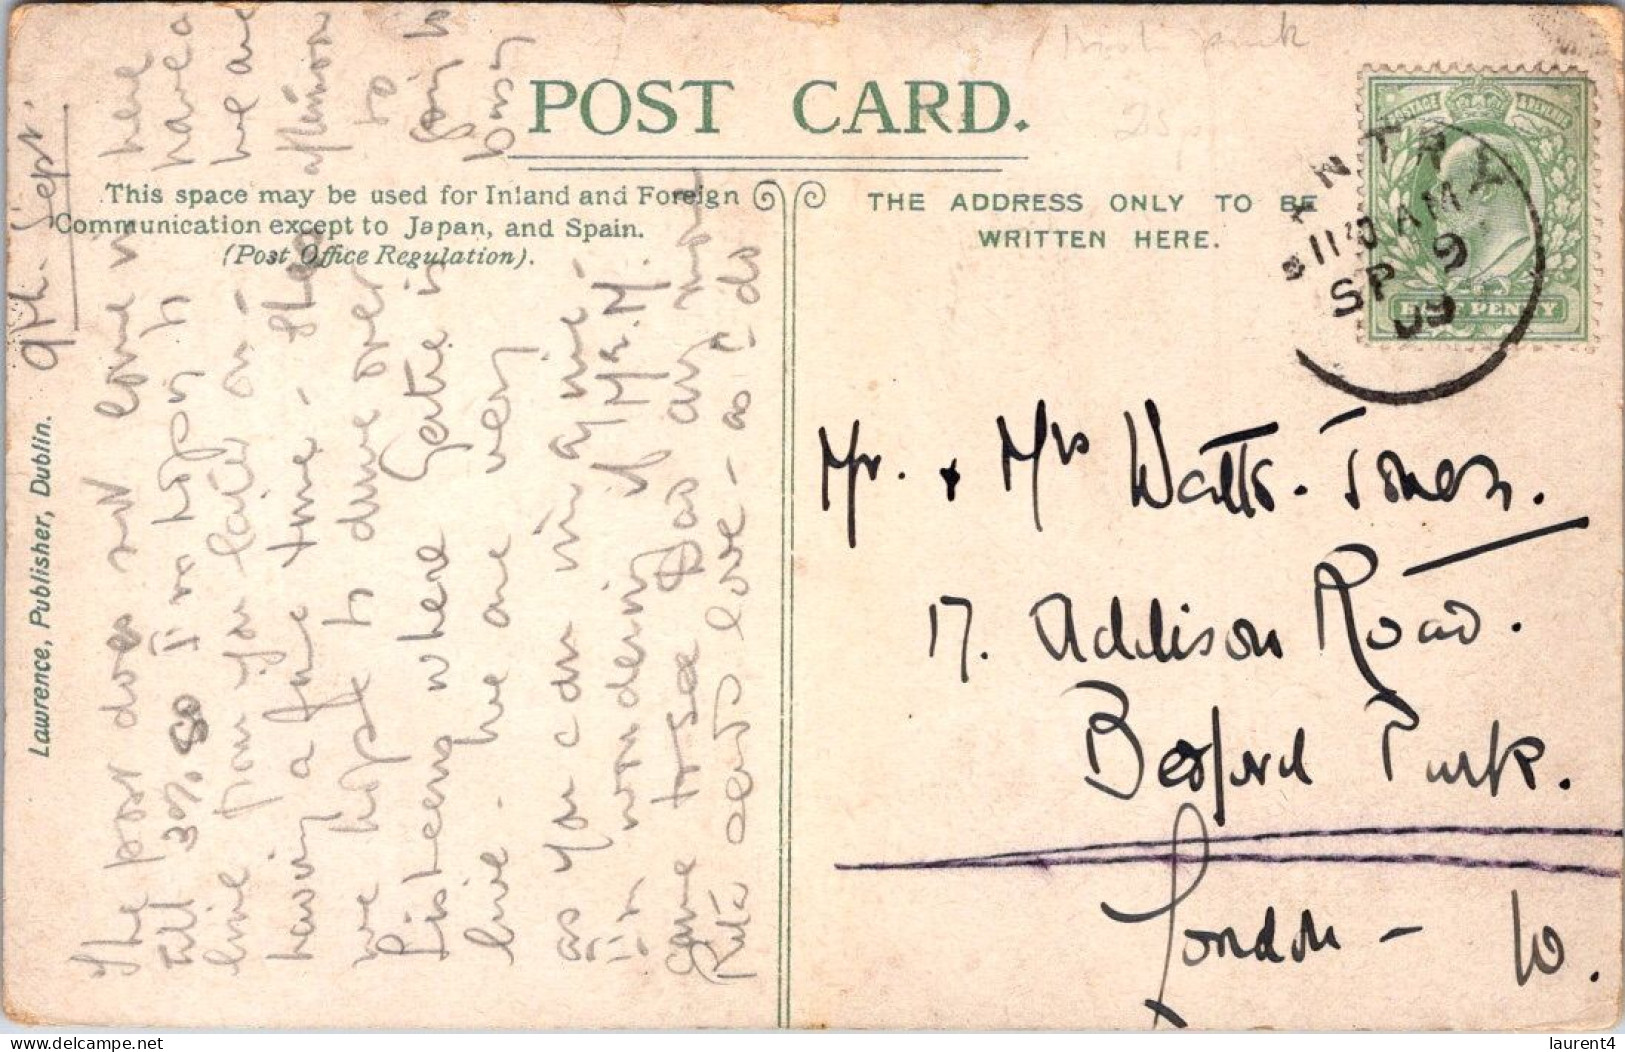 POST CARD.
This space may be used for Inland and Foreign
Communication except to Japan, and Spain.
(Post Office Regulation).
THE ADDRESS ONLY TO BE
WRITTEN HERE.
Lawrence, Publisher, Dublin.
POSTAGE REVENUE
HALF PENNY
NTRY
11 0 AM
SP 9
09
Mr. + Mrs Watts-Jones.
17. Addison Road.
Bedford Park.
London - W.
9th. Sept.
The post does not come in here
till so I'm hoping to have a
line from you later on - we are
having a fine time - this afternoon
we hope to drive over to
where Gertie is going to
live - we are very busy
as you can imagine
I'm wondering if Mr. M.
came to see Das any more
Rita sends love - as I do
25 p
laurent4